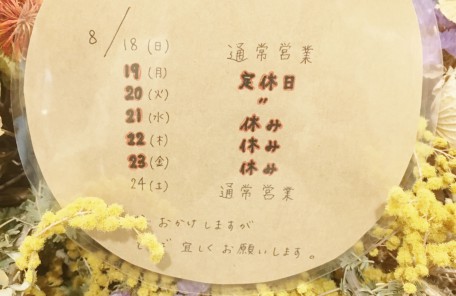 8/18(日) 通常営業
19(月) 定休日
20(火) 〃
21(水) 休み
22(木) 休み
23(金) 休み
24(土) 通常営業
おかけしますが
宜しくお願いします。